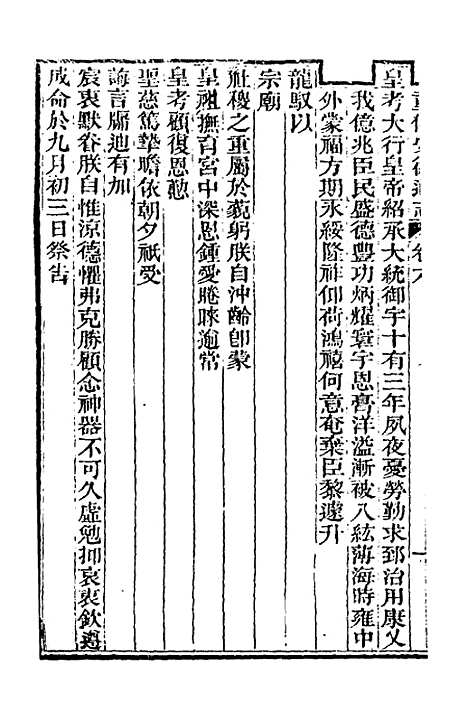 皇考大行皇帝紹承大統御宇十有三年夙夜憂勞勤求郅治用康乂
我億兆臣民盛德豐功炳耀寰宇恩膏洋溢漸被八紘薄海時雍中
外蒙福方期永綏隆祥仰荷鴻禧何意奄棄臣黎遽升
龍馭以
宗廟
社稷之重屬於藐躬朕自沖齡即蒙
皇祖撫育宮中深恩鍾愛睠睞逾常
皇考顧復恩慈
聖慈篤摯瞻依朝夕祗受
誨言牖迪有加
宸衷默眷朕自惟涼德懼弗克勝顧念神器不可久虛勉抑哀衷欽遵
成命於九月初三日祭告